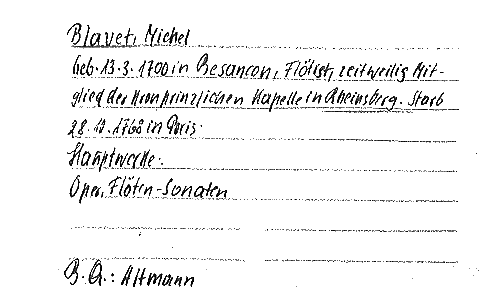 Blavet, Michel
geb. 13.3.1700 in Besancon, Flötist, zeitweilig Mit-
glied der Kronprinzlichen Kapelle in Rheinsberg. Starb
28.10.1768 in Paris.
Hauptwerke:
Oper, Flöten-Sonaten
B.Q.: Altmann